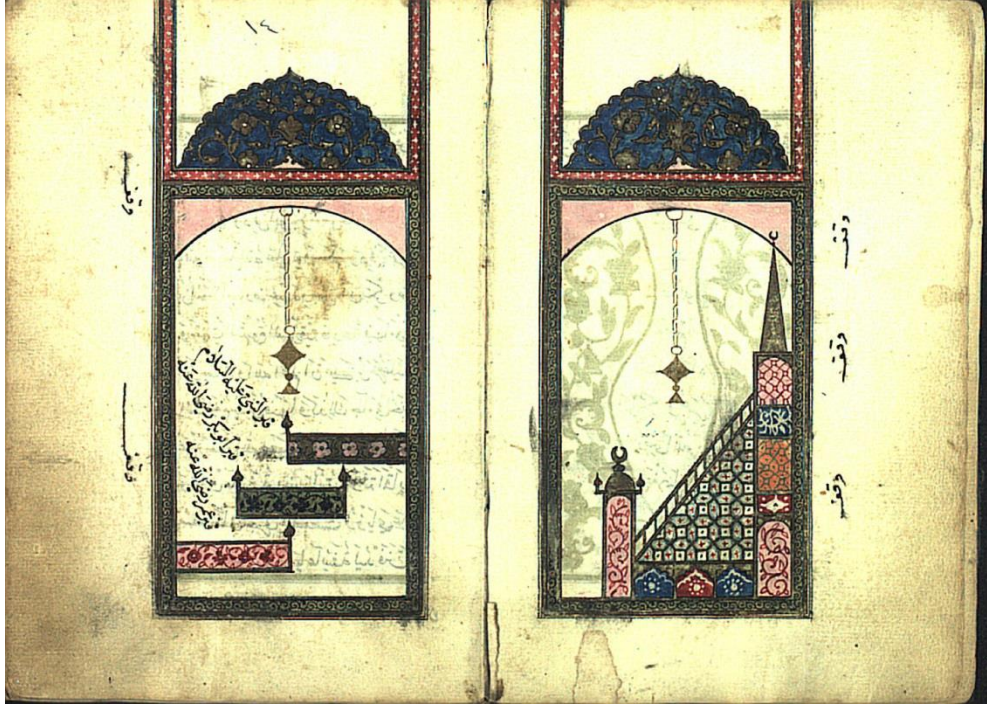 ١٤
وقف
وقف
وقف
وقف
وقف
قبر النبي عليه السلام
قبر أبو بكر رضي الله عنه
قبر عمر رضي الله عنه